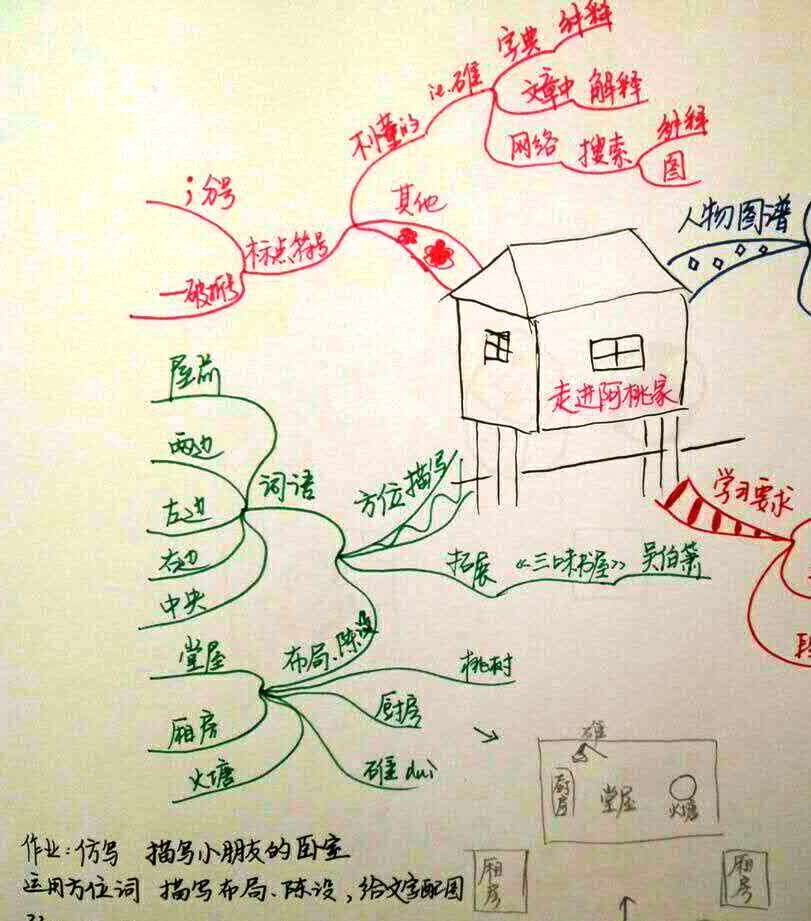 字典 解释
i.e.碓
文章中 解释
不懂的
网络 搜索 解释
图
其他
；分号
标点符号
一破折号
人物图谱
走进阿桃家
屋前
两边
词语
方位描写
左边
学习要求
右边
拓展 《三味书屋》 吴伯箫
中央
堂屋
布局、陈设
桃树
厢房
厨房
火塘
碓 duì
碓
厨房
堂屋
火塘
作业：仿写 描写小朋友的卧室
厢房
厢房
运用方位词 描写布局、陈设，给文字配图